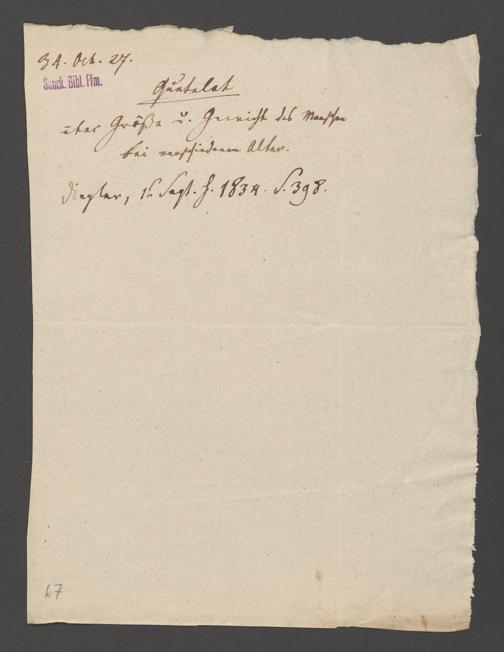 34. Oct. 27.
Senck. Bibl. Ffm.
Quetelet
über Größe u. Gewicht des Menschen
bei verschiedenem Alter.
Dingler, 1s Sept. H. 1834. S. 398.
47